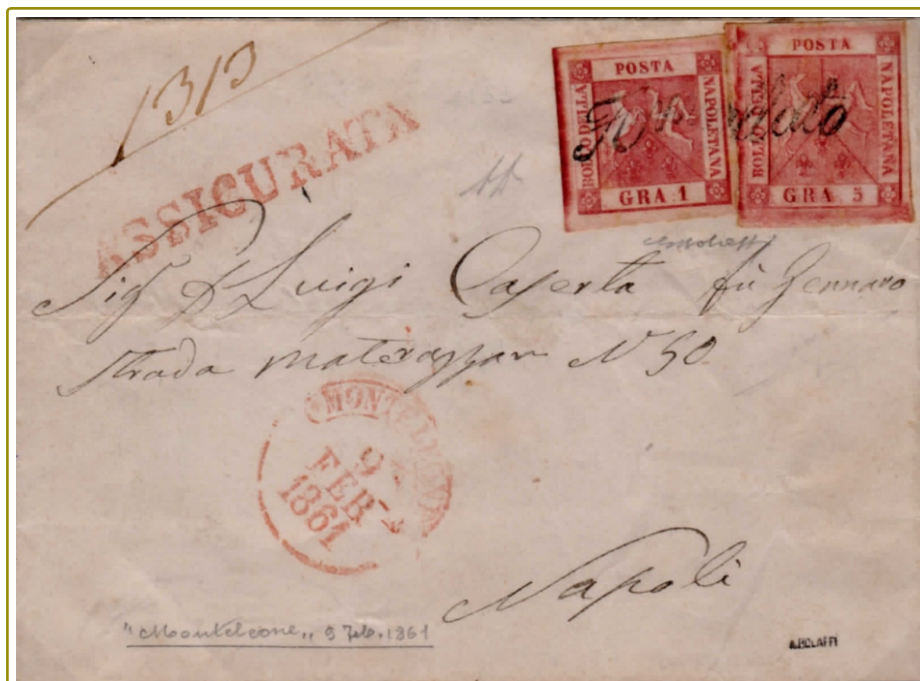 1313
ASSICURATA
BOLLO DELLA POSTA NAPOLETANA
GRA 1
BOLLO DELLA POSTA NAPOLETANA
GRA 5
Sig D Luigi Caserta fù Gennaro
Strada Materazzari N 50
MONTELEONE
9
FEB
1861
Napoli
"Monteleone" 9 Feb. 1861
A.BOLAFFI